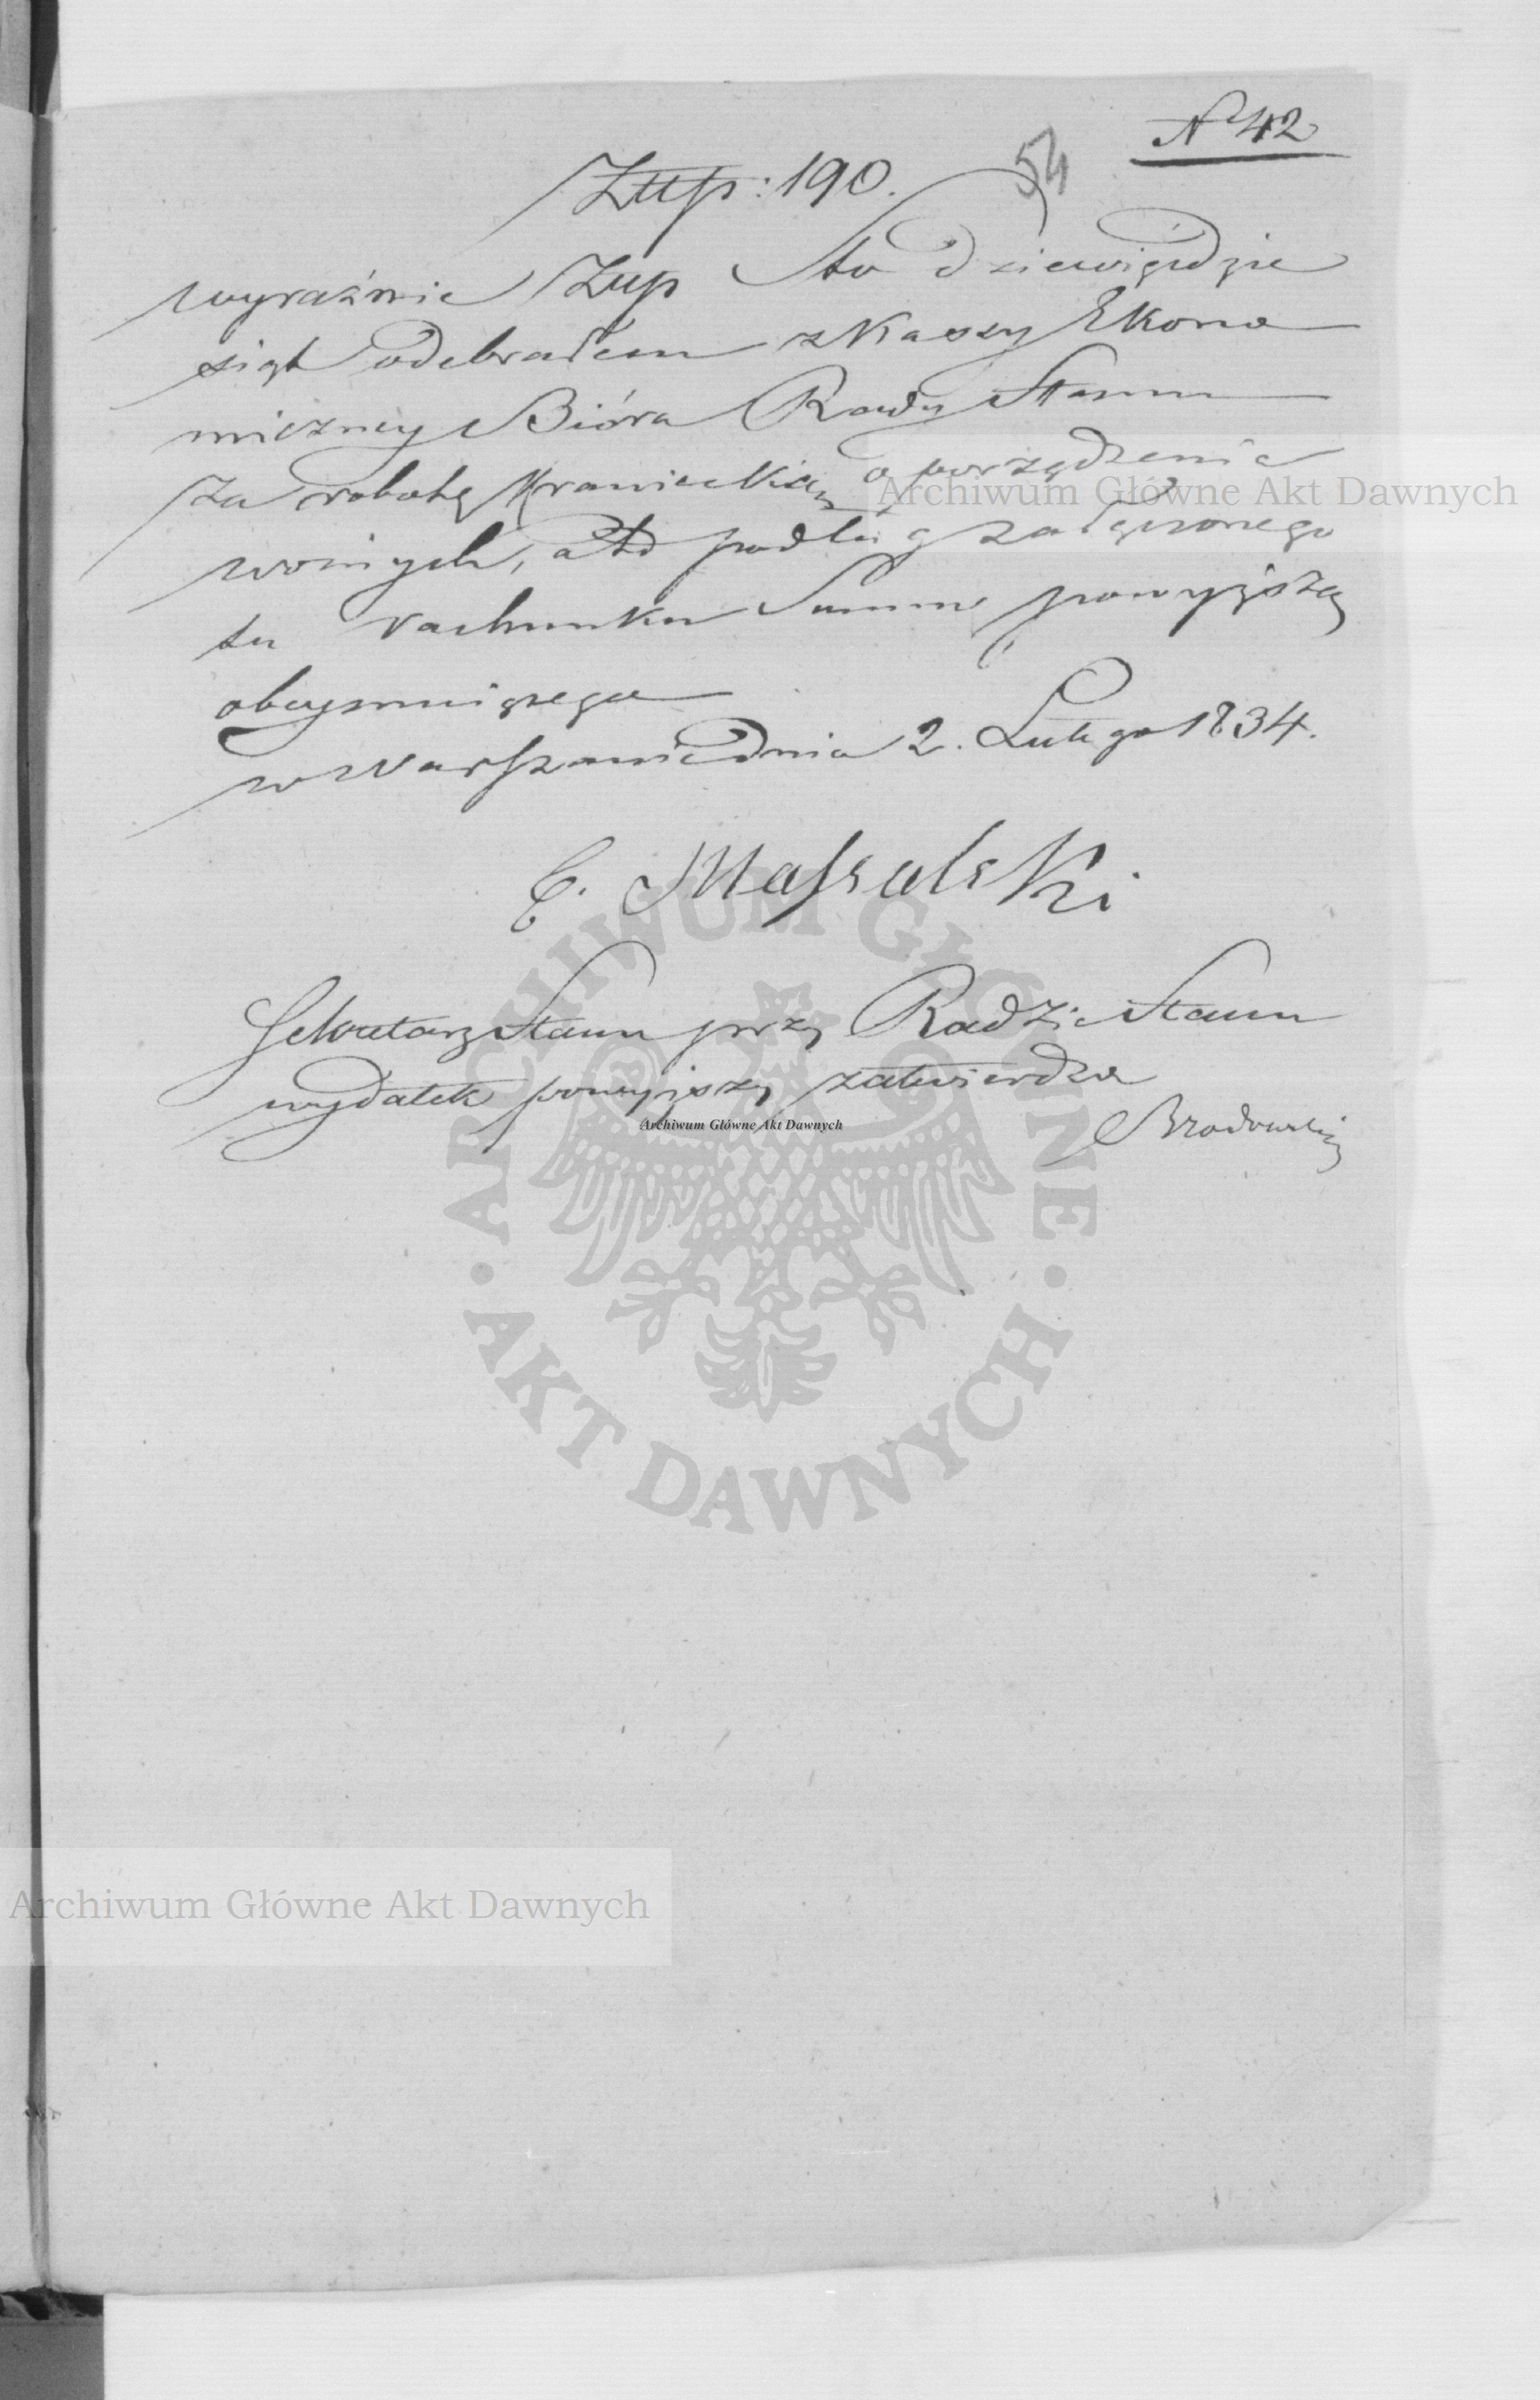 N 42
54
Złtp: 190.
wyraźnie Złtp Sto dziewięćdzie
siąt odebrałem z Kassy Ekono
miczney Bióra Rady Stanu
za robotę Krawiecką oporządzenie
woźnych, a to podług załączonego
tu rachunku Summę powyższą
obeymuiącego
w Warszawie dnia 2. Lutego 1834.
C. Massalski
Sekretarz Stanu przy Radzie Stanu
wydatek powyższy zatwierdza
Brodowski
Archiwum Główne Akt Dawnych
Archiwum Główne Akt Dawnych
Archiwum Główne Akt Dawnych
ARCHIWUM GŁÓWNE
AKT DAWNYCH